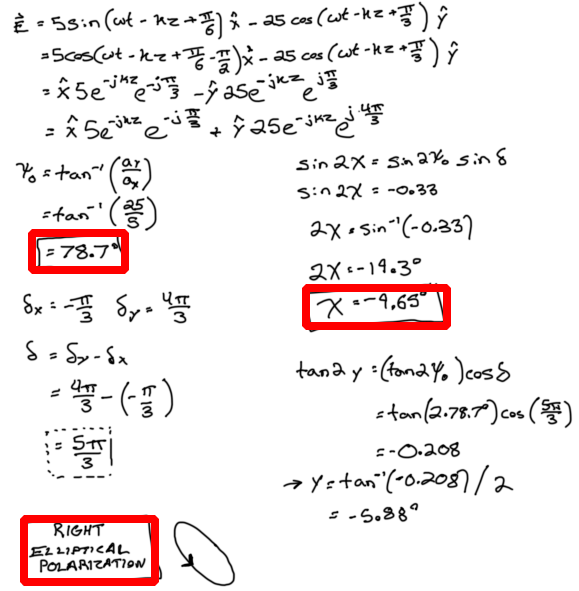 E⃗ = 5sin(ωt - kz + π/6) x̂ - 25 cos(ωt - kz + π/3) ŷ
= 5cos(ωt - kz + π/6 - π/2) x̂ - 25 cos(ωt - kz + π/3) ŷ
= x̂ 5e^-jkz e^-jπ/3 - ŷ 25e^-jkz e^jπ/3
= x̂ 5e^-jkz e^-jπ/3 + ŷ 25e^-jkz e^j4π/3
ψ₀ = tan⁻¹(ay/ax)
= tan⁻¹(25/5)
= 78.7°
δx = -π/3 δy = 4π/3
δ = δy - δx
= 4π/3 - (-π/3)
= 5π/3
RIGHT
ELLIPTICAL
POLARIZATION
sin 2χ = sin 2ψ₀ sin δ
sin 2χ = -0.33
2χ = sin⁻¹(-0.33)
2χ = -19.3°
χ = -9.65°
tan 2γ = (tan 2ψ₀) cos δ
= tan(2·78.7°) cos(5π/3)
= -0.208
→ γ = tan⁻¹(-0.208) / 2
= -5.88°